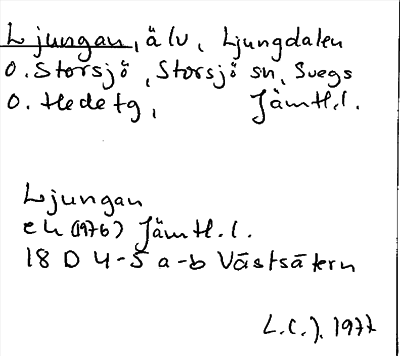 Ljungan, älv, Ljungdalen
o. Storsjö, Storsjö sn, Svegs
o. Hede tg, Jämtl.l.
Ljungan
ek (1976) Jämtl.l.
18 D 4-5 a-b Västsätern
L.C.J. 1977